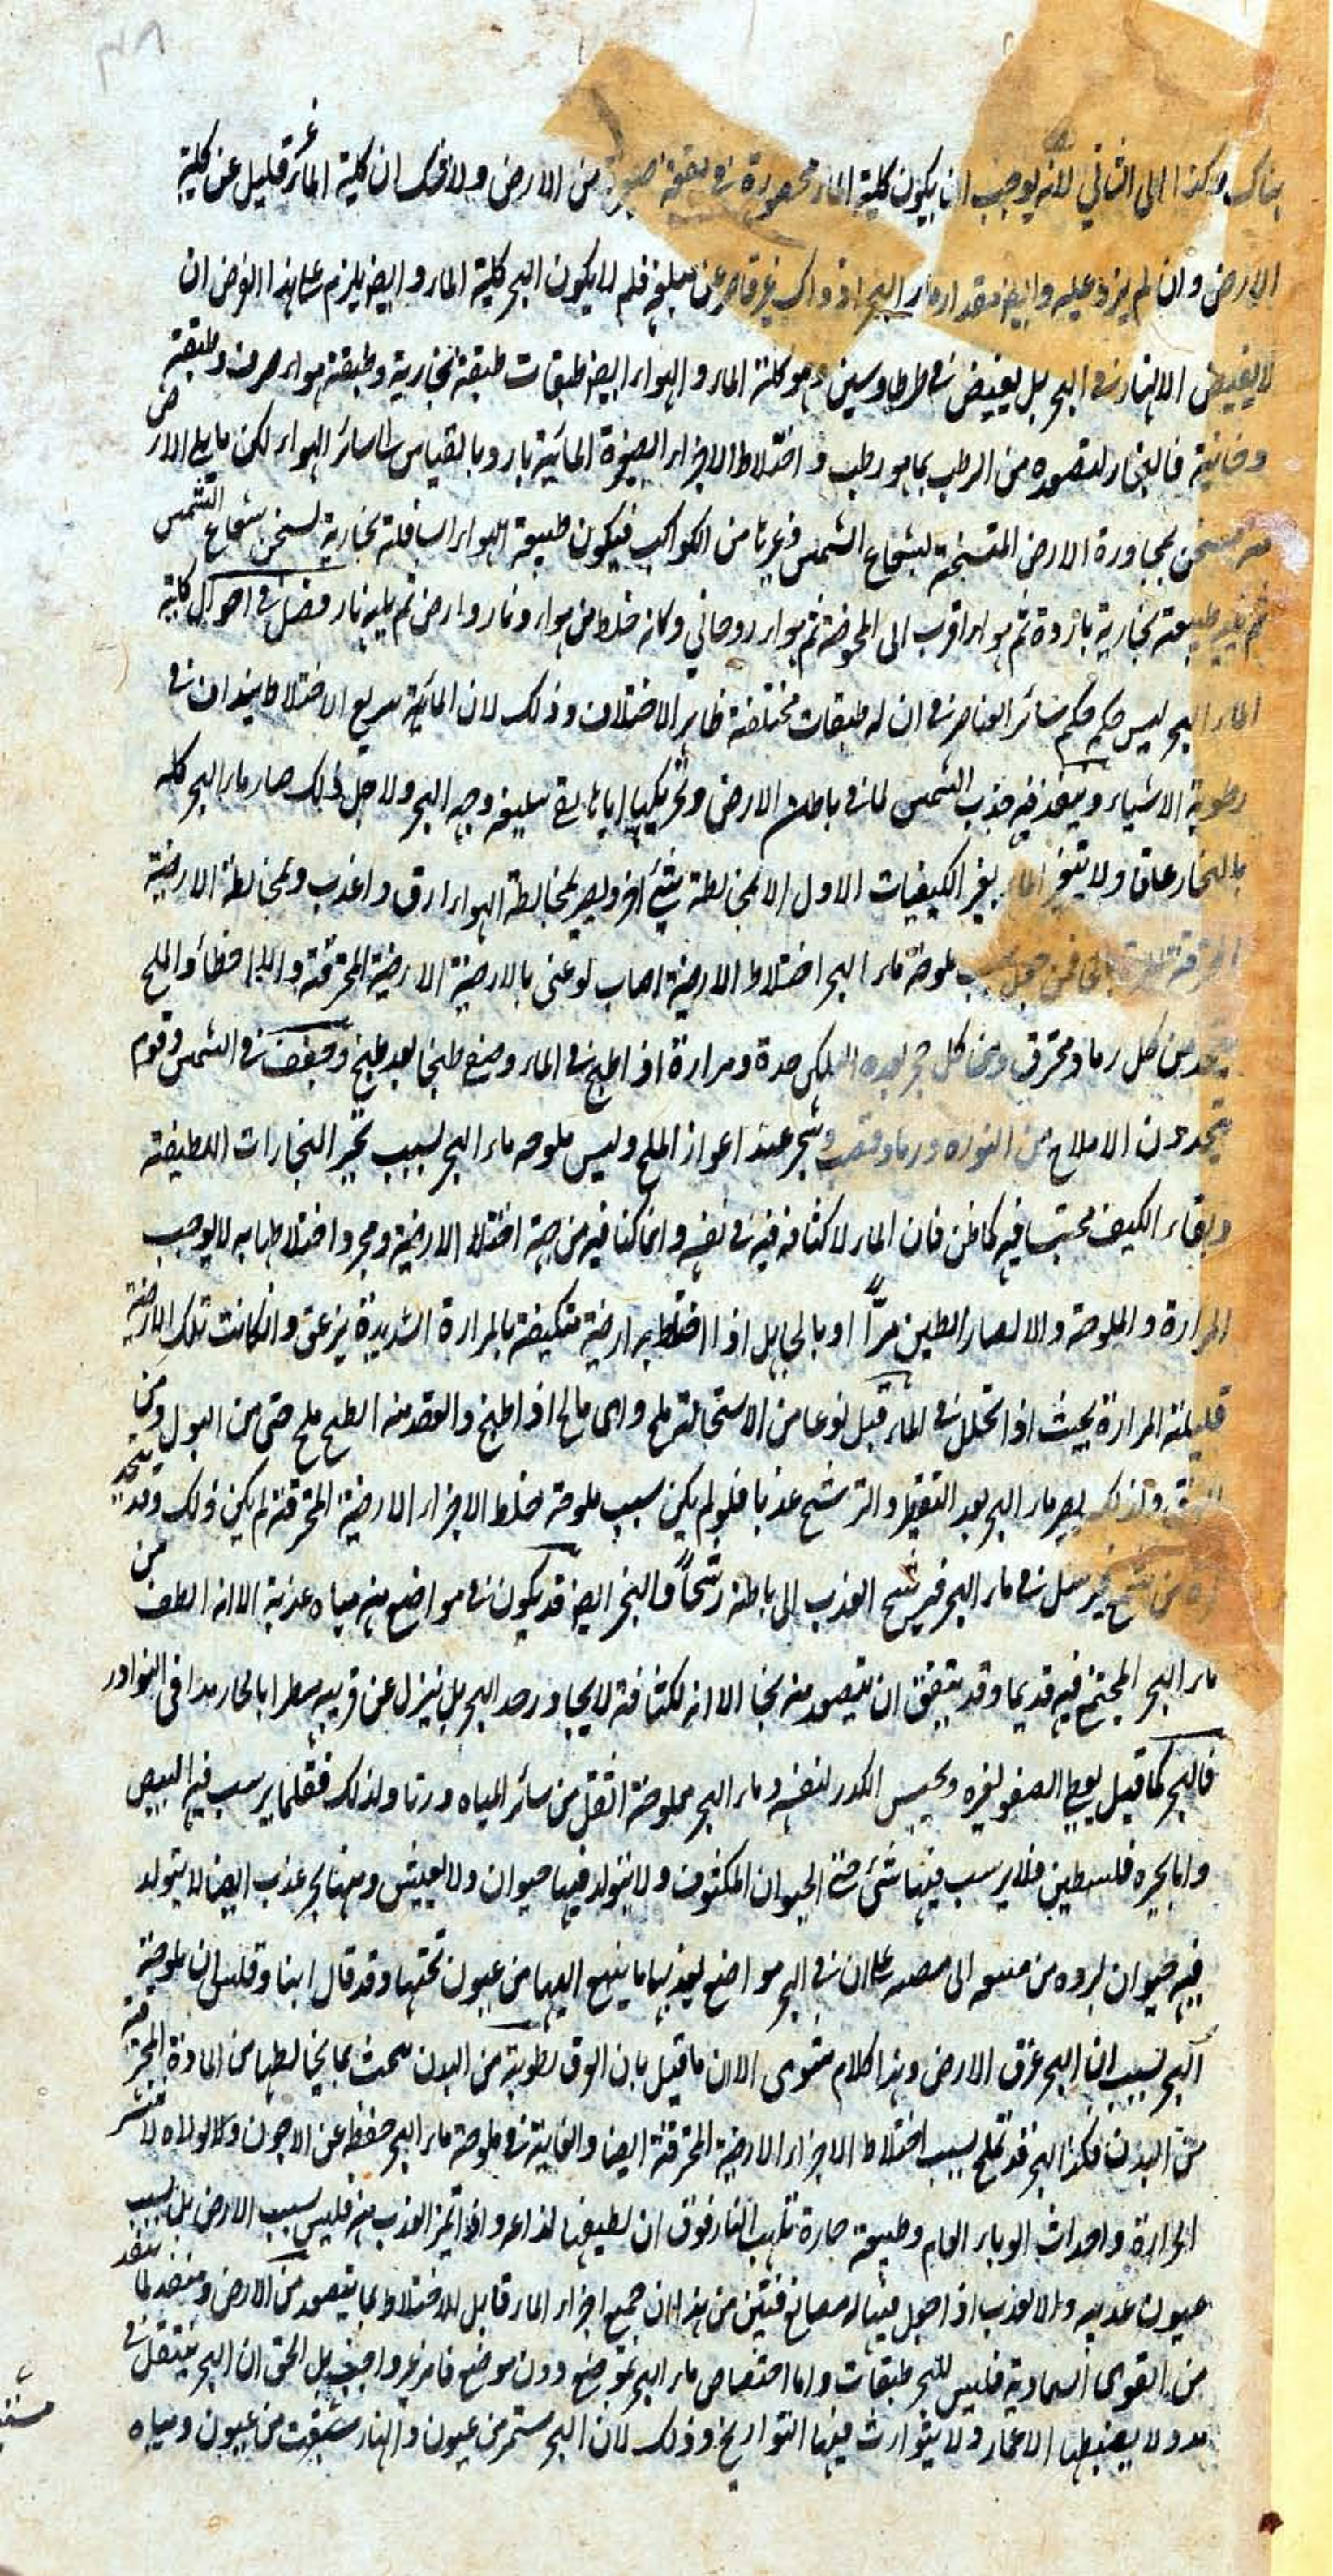 هناك وكذا الى الثاني لانه يوجب ان يكون كلية الماء محصورة في بقعة صغيرة من الارض ولا شك ان كلية الماء غير قليل عن كلية
الارض وان لم يزد عليه وايض مقدار ماء البحر اذ ذاك غير قاصر عن مبلغه فلم لا يكون البحر كلية الماء وايض يلزم على هذا الفرض ان
لا يفيض الانهار في البحر بل يفيض في طرطاوسين وهو كلية الماء والهواء ايض طبقات طبقة بخارية وطبقة هواء صرف وطبقة
دخانية فالبخار لتصعده من الرطب بما هو رطب واختلاط الاجزاء الصغيرة المائية بارد بالقياس الى سائر الهواء لكن ما يلي الارض
منه يسخن بمجاورة الارض المتسخنة بشعاع الشمس وغيرها من الكواكب فيكون طبيعة الهواء السافلة بخارية تسخن بشعاع الشمس
ثم يليه طبيعة بخارية باردة ثم هواء اقرب الى المحوضة ثم هواء دخاني وكانه خلط من هواء ونار وارض ثم يليه نار فصل في احوال كلية
الماء البحر ليس حكمه حكم سائر العناصر في ان له طبقات مختلفة ظاهر الاختلاف وذلك لان المائية سريع الاختلاط ينداف في
رطوبة الاشياء وينفذ فيه جذب الشمس لما في باطن الارض وتحريكها اياها الى وجه البحر ولاجل ذلك صار ماء البحر كله
بالبخار عاق ولا يتغير الماء بغير الكيفيات الاول الا لمخالطة شيء اخر ويصير لمخالطة الهواء ارق واعذب ولمخالطة الارضية
المحترقة فمن جعل سبب ملوحة ماء البحر اختلاط الارضية اصاب لو عنى بالارضية الارضية المحترقة والا اخطأ والملح
يتخذ من كل رماد محترق ومن كل حجر حدة ومرارة اذ اطبخ في الماء وصنع طبخا بعد طبخ وجفف في الشمس وقوم
يتخذون الاملاح من النوره ورماد قصب وشجر عند اعواز الملح وليس ملوحه ماء البحر بسبب تبخر البخارات اللطيفة
وبقاء الكثيف محتبسا فيه كما ظن فان الماء لا كثافه فيه في نفسه وانما كثافيه من جهة اختلاط الارضية ومجرد اختلاطها به لا يوجب
المرارة والملوحة والا لصار الطين مرّاً او بالجا بل اذا اختلط به ارضية متكيفة بالمرارة الشديدة يزعق وان كانت تلك الارضية
قليلة المرارة بحيث اذا تحلل في الماء قبل نوعا من الاستحالة ملح واى مالح اذا طبخ وانعقد منه الطبخ ملح حتى من البول ومن
ولذلك يصير ماء البحر بعد التقطير والترشيح عذبا فلو لم يكن سبب ملوحة خلط الاجزاء الارضية المحترقة لم يكن ذلك وقد يتخذ
كره من شمع فيرسل في ماء البحر فيرشح العذب الى باطنه رشحاً والبحر ايض قد يكون في مواضع منه مياه عذبة الا انه الطف من
ماء البحر المجتمع فيه قديما وقد يتفق ان يتصعد منه بخار الا انه لكثافة لا يجاوز حد البحر بل ينزل عن قريبه مطرا مالحا هذا في النوادر
فالبحر كما قيل يعطى الصفو لغيره ويحبس الكدر لنفسه وماء البحر بملوحة اثقل من سائر المياه وزنا ولذلك فقلما يرسب فيه البيض
واما بحيره فلسطين فلا يرسب فيها شىء حتى الحيوان المكتوف ولا يتولد فيها حيوان ولا يعيش ومنها بحر عذب ايضا لا يتولد
فيه حيوان لبروده من منبعه الى مصبه على ان في البحر مواضع يعذبها ما ينبع اليها من عيون تحتها وقد قال ابنا وقلس ان ملوحة
البحر بسبب ان البحر عرق الارض وهذا كلام شعرى الا ان ما قيل بان العرق رطوبة من البدن ملحت بما يخالطها من المادة المحترقة
من البدن فكذا البحر قد تملح بسبب اختلاط الاجزاء الارضية المحترقة ايضا والغاية في ملوحة ماء البحر حفظه عن الاجون ولولاه لانتشر
واحداث الوباء العام وطبيعة حارة تلهب النار فوق ان لطيفها لذاعه واذا تميز العذب منه فليس بسبب الارض بل بسبب
عيون عذبه والا لعذب اذا جعل فيها له مصانع فتبين من هذا ان جميع اجزاء الماء قابل للاختلاط بما يتصعد من الارض ومتصعد لما ينفذ
من القوى السماوية فليس للبحر طبقات واما اختصاص ماء البحر بموضع دون موضع فامر غير واجب بل الحق ان البحر ينتقل في
مدد لا يضبطها الاعمار ولا يتوارث فيها التواريخ وذلك لان البحر مستمر من عيون والنهار ينبعث من عيون ومياه